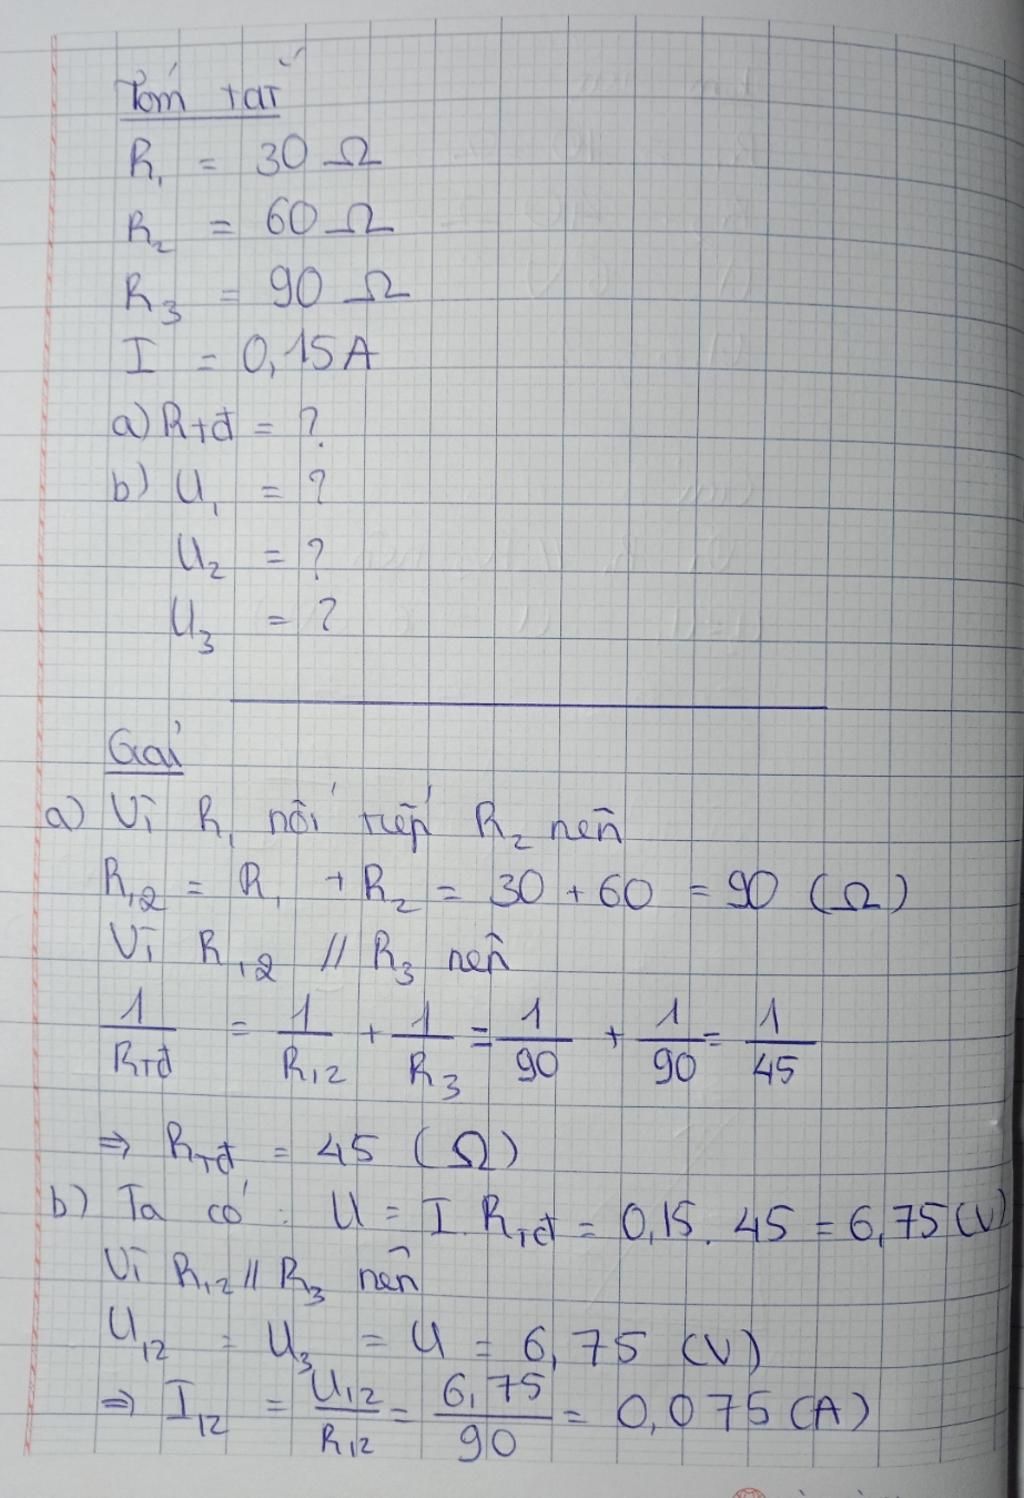 Tóm tắt
R₁ = 30 Ω
R₂ = 60 Ω
R₃ = 90 Ω
I = 0,15A
a) Rtđ = ?
b) U₁ = ?
U₂ = ?
U₃ = ?
Giải
a) Vì R₁ nối tiếp R₂ nên
R₁₂ = R₁ + R₂ = 30 + 60 = 90 (Ω)
Vì R₁₂ // R₃ nên
1/Rtđ = 1/R₁₂ + 1/R₃ = 1/90 + 1/90 = 1/45
⇒ Rtđ = 45 (Ω)
b) Ta có : U = I . Rtđ = 0,15 . 45 = 6,75 (V)
Vì R₁₂ // R₃ nên
U₁₂ = U₃ = U = 6,75 (V)
⇒ I₁₂ = U₁₂/R₁₂ = 6,75/90 = 0,075 (A)